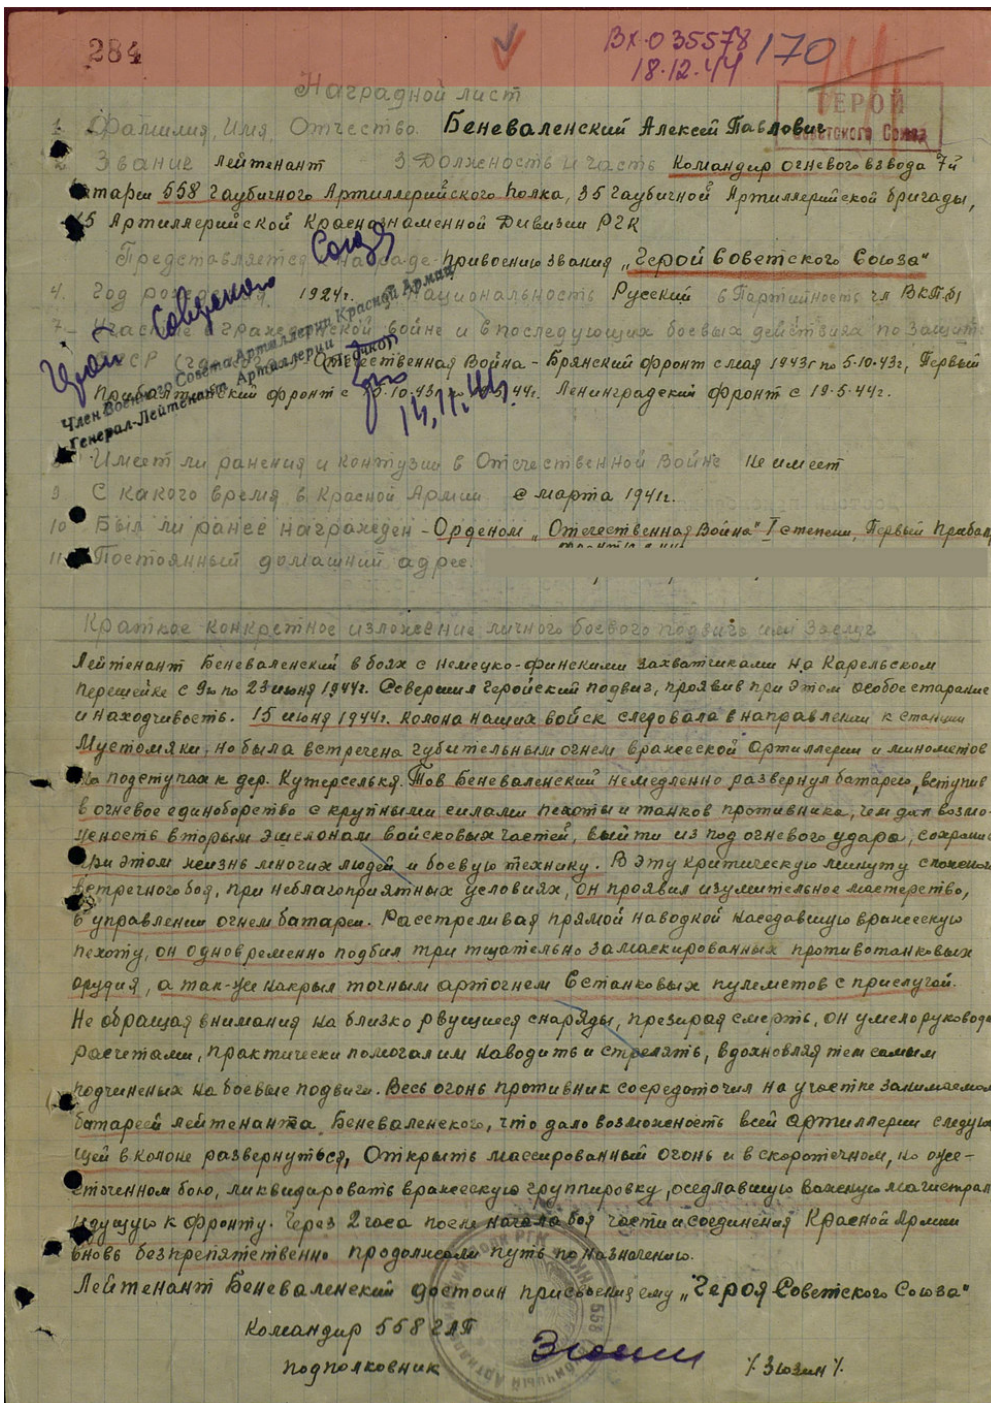 284
ВХ-035578
18.12.44
170
ГЕРОЙ
Советского Союза
Наградной лист
1. Фамилия, Имя, Отчество Беневаленский Алексей Павлович
2. Звание лейтенант 3. Должность и часть Командир огневого взвода 7й
батареи 558 Гаубичного Артиллерийского полка, 35 Гаубичной Артиллерийской бригады,
15 Артиллерийской Краснознаменной Дивизии РГК
Представляется к Награде - Присвоению звания „Герой Советского Союза“
Герой Советского Союза
4. Год рождения 1924г. Национальность Русский 6 Партийность чл ВКП.б)
7. Участие в гражданской войне и в последующих боевых действиях по защите
СССР Отечественная Война - Брянский фронт с мая 1943г по 5.10.43г, Первый
Прибалтийский фронт с 10.44г. Ленинградский фронт с 19.5.44г.
Член Военного Совета Артиллерии Красной Армии
Генерал-Лейтенант Артиллерии
14.11.44г.
8 Имеет ли ранения и контузии в Отечественной Войне Не имеет
9 С какого время в Красной Армии с марта 1941г.
10 Был ли ранее награжден - Орденом „Отечественная Война“ I степени, Первый Прибал
11 Постоянный домашний адрес.
Краткое конкретное изложение личного боевого подвига или заслуг
Лейтенант Беневаленский в боях с Немецко-финскими захватчиками на Карельском
перешейке с 9го по 23 июня 1944г. Совершил Геройский подвиг, проявив при этом особое старание
и находчивость. 15 июня 1944г. Колона наших войск следовала в направлении к станции
Мустомяки, но была встречена губительным огнем вражеской артиллерии и минометов
на подступах к дер. Кутерселькя. Тов Беневаленский немедленно развернул батарею, вступив
в огневое единоборство с крупными силами пехоты и танков противника, чем дал возмо-
жность вторым эшелонам войсковых частей, выйти из под огневого удара, сохранив
при этом жизнь многих людей и боевую технику. В эту критическую минуту сложного
встречного боя, при неблагоприятных условиях, он проявил изумительное мастерство,
в управлении огнем батареи. Расстреливая прямой наводкой наседавшую вражескую
пехоту, он одновременно подбил три тщательно замаскированных противотанковых
орудия, а так-же накрыл точным артогнем 6 станковых пулеметов с прислугой.
Не обращая внимания на близко рвущиеся снаряды, презирая смерть, он умело руковода
расчетами, практически помогал им наводить и стрелять, вдохновляя тем самым
подчиненых на боевые подвиги. Весь огонь противник сосредоточил на участке занимаемом
батареей лейтенанта Беневаленского, что дало возможность всей артиллерии следую
щей в колоне развернуться, Открыть массированный огонь и в скоротечном, но оже-
сточенном бою, ликвидировать вражескую группировку, оседлавшую важную магистрал
идущую к фронту. Через 2 часа после начала боя части и соединения Красной Армии
вновь безпрепятственно продолжали путь по назначению.
Лейтенант Беневаленский достоин присвоения ему „Героя Советского Союза“
Командир 558 ГАП
подполковник
/Зюзин/.